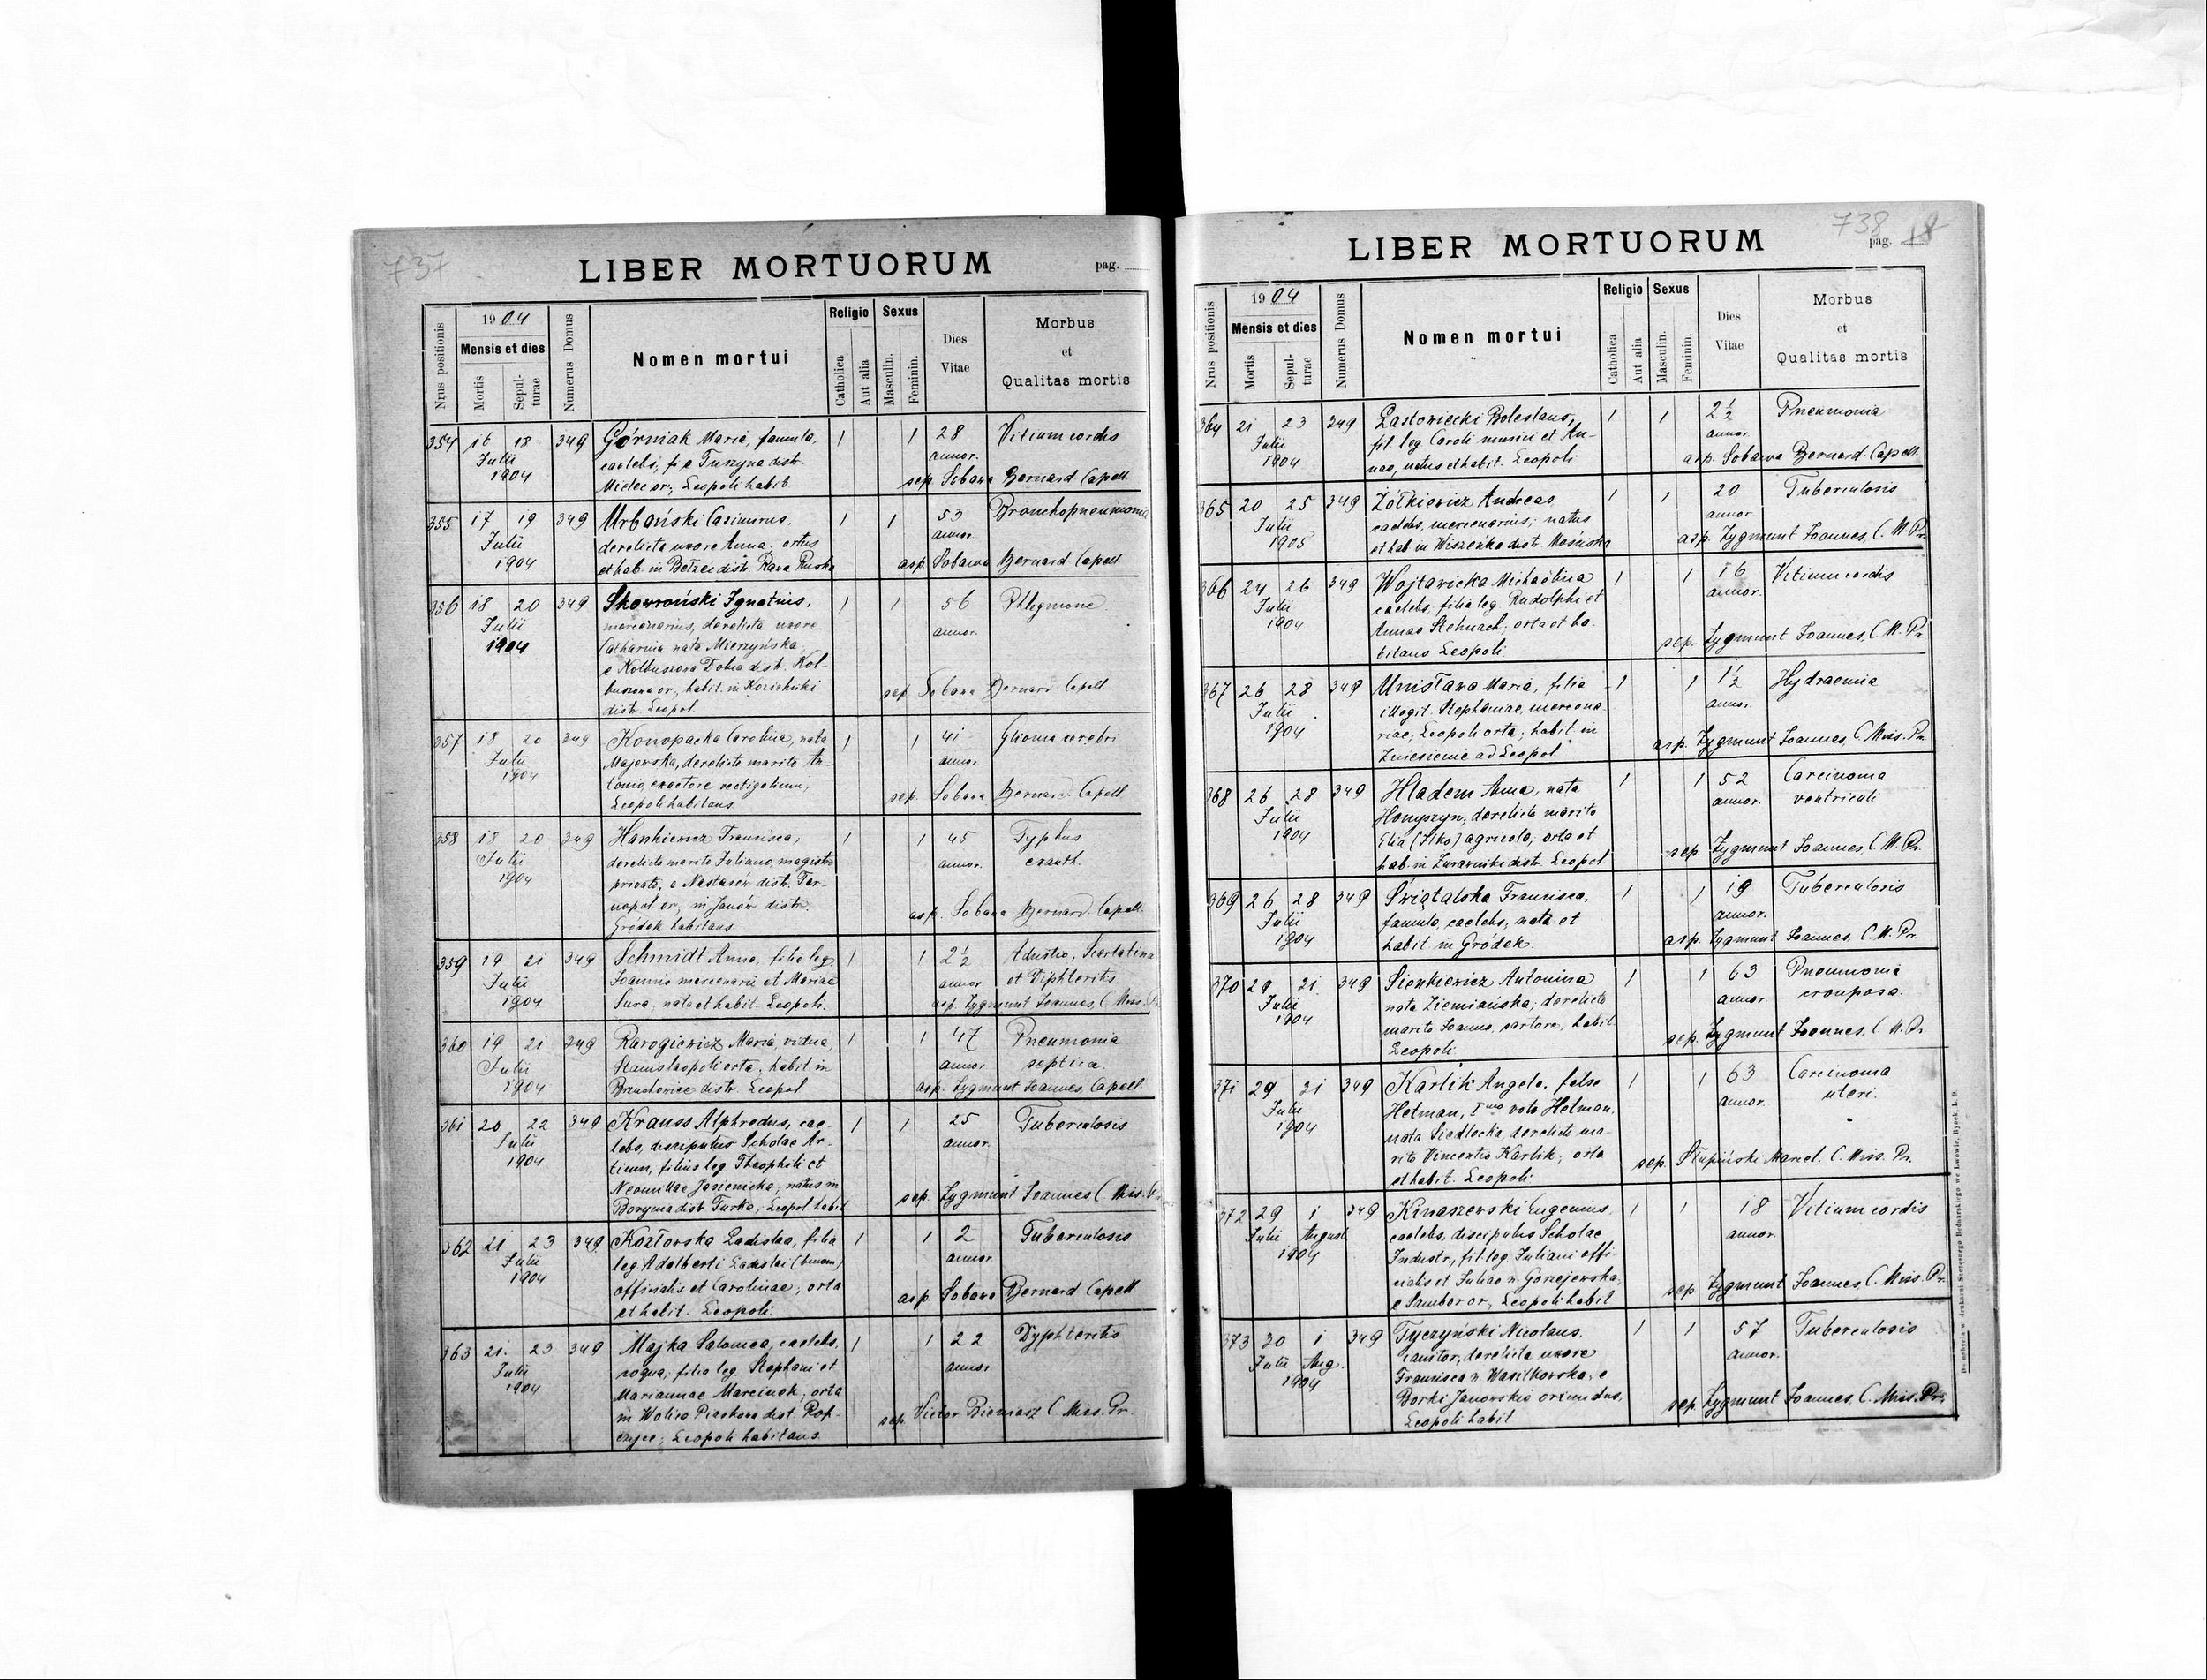 737
LIBER MORTUORUM
pag.
Nrus positionis
1904
Mensis et dies
Mortis
Sepulturae
Numerus Domus
Nomen mortui
Religio
Catholica
Aut alia
Sexus
Masculin.
Feminin.
Dies
Vitae
Morbus
et
Qualitas mortis
354 16 18 349 Górniak Maria, famula, 1 1 28 Vitium cordis
Julii caelebs, fi e Tuszyna distr. annor.
1904 Mielec or., Leopoli habit. sep. Sobawa Bernard Capell.
355 17 19 349 Urbański Casimirus, 1 1 53 Bronchopneumonia
Julii derelicta uxore Anna, ortus annor.
1904 et hab. in Bełzec distr. Rawa Ruska asp. Sobawa Bernard Capell.
356 18 20 349 Skowroński Ignatius, 1 1 56 Phlegmone
Julii mercenarius, derelicta uxore annor.
1904 Catharina nata Mierzyńska,
e Kolbuszowa Dolna distr. Kol-
buszowa or., habit. in Kozielniki sep. Sobawa Bernard Capell.
distr. Leopol.
357 18 20 349 Konopacka Carolina, nata 1 1 41 Glioma cerebri
Julii Majewska, derelicto marito An- annor.
1904 tonio, exactore vectigalium,
Leopoli habitans. sep. Sobawa Bernard Capell.
358 18 20 349 Hankiewicz Francisca, 1 1 45 Typhus
Julii derelicto marito Juliano, magistro annor. exanth.
1904 privato, e Nastasów distr. Tar-
nopol or., in Janów distr. asp. Sobawa Bernard Capell.
Gródek habitans.
359 19 21 349 Schmidt Anna, filia leg. 1 1 2½ Adustio, Scarlatina
Julii Joannis mercenarii et Mariae annor. et Diphteritis
1904 Sura, nata et habit. Leopoli. asp. Zygmunt Joannes, C. Miss.
360 19 21 349 Rarogiewicz Maria, vidua, 1 1 47 Pneumonia
Julii Stanislaopoli orta, habit. in annor. septica
1904 Brzuchowice distr. Leopol asp. Zygmunt Joannes, Capell.
361 20 22 349 Krauss Alphredus, cae- 1 1 25 Tuberculosis
Julii lebs, discipulus Scholae Ar- annor.
1904 tium, filius leg. Theophili et
Neonillae Jasienicka, natus in
Borynia dist. Turka, Leopol. habit. sep. Zygmunt Joannes C. Miss.
362 21 23 349 Kozłowska Ladislaa, filia 1 1 2 Tuberculosis
Julii leg. Adalberti Ladislai (binom) annor.
1904 officialis et Carolinae, orta
et habit. Leopoli. asp. Sobawa Bernard Capell.
363 21. 23 349 Majka Salomea, caelebs, 1 1 22 Dyphteritis
Julii coqua, filia leg. Stephani et annor.
1904 Mariannae Marciniak, orta
in Wolica Piaskowa dist. Rop- sep. Victor Bieniasz C. Miss. Pr.
czyce, Leopoli habitans.
738
LIBER MORTUORUM
pag. 18
Nrus positionis
1904
Mensis et dies
Mortis
Sepulturae
Numerus Domus
Nomen mortui
Religio
Catholica
Aut alia
Sexus
Masculin.
Feminin.
Dies
Vitae
Morbus
et
Qualitas mortis
364 21 23 349 Lastowiecki Boleslaus, 1 1 2½ Pneumonia
Julii fil. leg. Caroli musici et An- annor.
1904 nae, natus et habit. Leopoli asp. Sobawa Bernard Capell.
365 20 25 349 Żółkiewicz Andreas, 1 1 20 Tuberculosis
Julii caelebs, mercenarius, natus annor.
1905 et hab. in Wiszeńka distr. Mościska asp. Zygmunt Joannes, C. M. Pr.
366 24 26 349 Wojtawicka Michaëlina 1 1 16 Vitium cordis
Julii caelebs, filia leg. Rudolphi et annor.
1904 Annae Stehnach, orta et ha-
bitans Leopoli. sep. Zygmunt Joannes, C. M. Pr.
367 26 28 349 Unisława Maria, filia 1 1 1½ Hydraemia
Julii illegit. Stephaniae, mercena- annor.
1904 riae, Leopoli orta, habit. in
Zniesienie ad Leopol. asp. Zygmunt Joannes, C. Miss. Pr.
368 26 28 349 Hladem Anna, nata 1 1 52 Carcinoma
Julii Honyszyn, derelicto marito annor. ventriculi
1904 Elia (Ilko) agricola, orta et
hab. in Żurawniki distr. Leopol sep. Zygmunt Joannes, C. M. Pr.
369 26 28 349 Świątalska Francisca, 1 1 19 Tuberculosis
Julii famula, caelebs, nata et annor.
1904 habit. in Gródek. asp. Zygmunt Joannes, C. M. Pr.
370 29 31 349 Sienkiewicz Antonina 1 1 63 Pneumonia
Julii nata Ziemiańska, derelicto annor. crouposa.
1904 marito Joanne, sartore, habit.
Leopoli. sep. Zygmunt Joannes, C. M. Pr.
371 29 31 349 Karlik Angela, false 1 1 63 Carcinoma
Julii Hetman, I mo voto Hetman, annor. uteri.
1904 nata Siedlecka, derelicto ma-
rito Vincentio Karlik, orta sep. Słupiński Marcel. C. Miss. Pr.
et habit. Leopoli.
372 29 1 349 Kinaszewski Eugenius, 1 1 18 Vitium cordis
Julii August caelebs, discipulus Scholae annor.
1904 Industr., fil. leg. Juliani offi-
cialis et Juliae n. Gorzejewska,
e Sambor or., Leopoli habit. sep. Zygmunt Joannes, C. Miss. Pr.
373 30 1 349 Tyczyński Nicolaus, 1 1 57 Tuberculosis
Julii Aug. ianitor, derelicta uxore annor.
1904 Francisca n. Wasilkowska, e
Borki Janowskie oriundus, sep. Zygmunt Joannes, C. Miss. Pr.
Leopoli habit.
Do nabycia w drukarni Szczęsnego Bednarskiego we Lwowie, Rynek, L. 9.